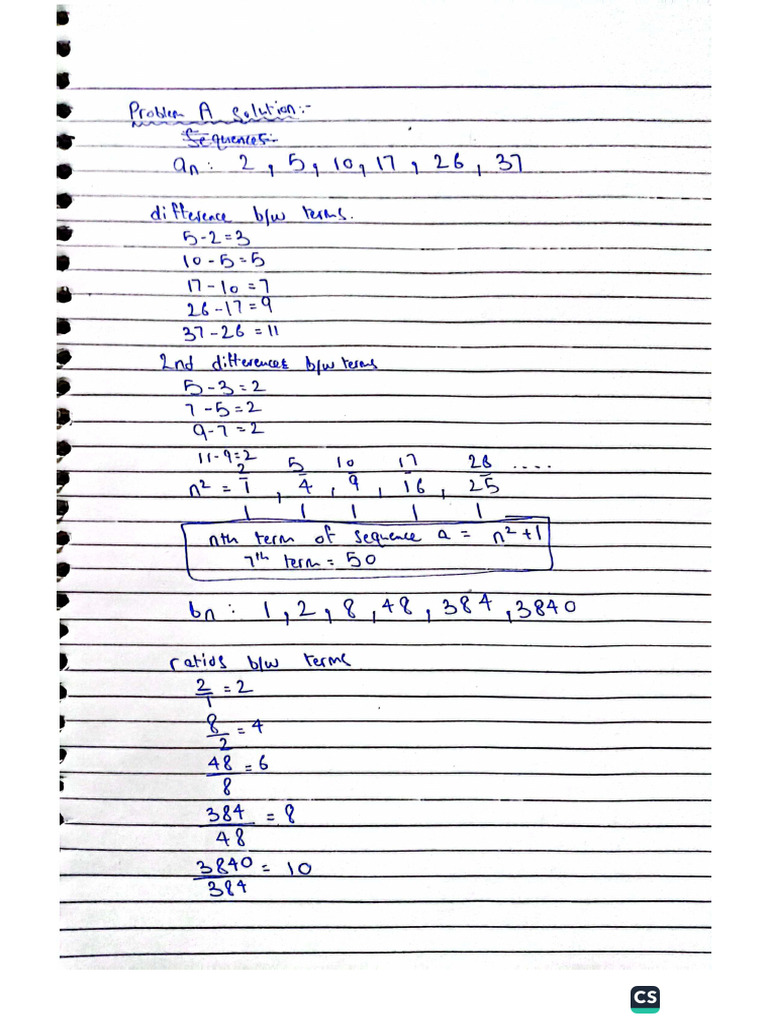 Problem A Solution:-
Sequences:-
an: 2, 5, 10, 17, 26, 37
difference b/w terms.
5-2=3
10-5=5
17-10=7
26-17=9
37-26=11
2nd differences b/w terms
5-3=2
7-5=2
9-7=2
11-9=2
2 5 10 17 26 ....
n² = 1, 4, 9, 16, 25
1 1 1 1 1
nth term of sequence a = n²+1
7th term = 50
bn: 1, 2, 8, 48, 384, 3840
ratios b/w terms
2/1 = 2
8/2 = 4
48/8 = 6
384/48 = 8
3840/384 = 10
CS